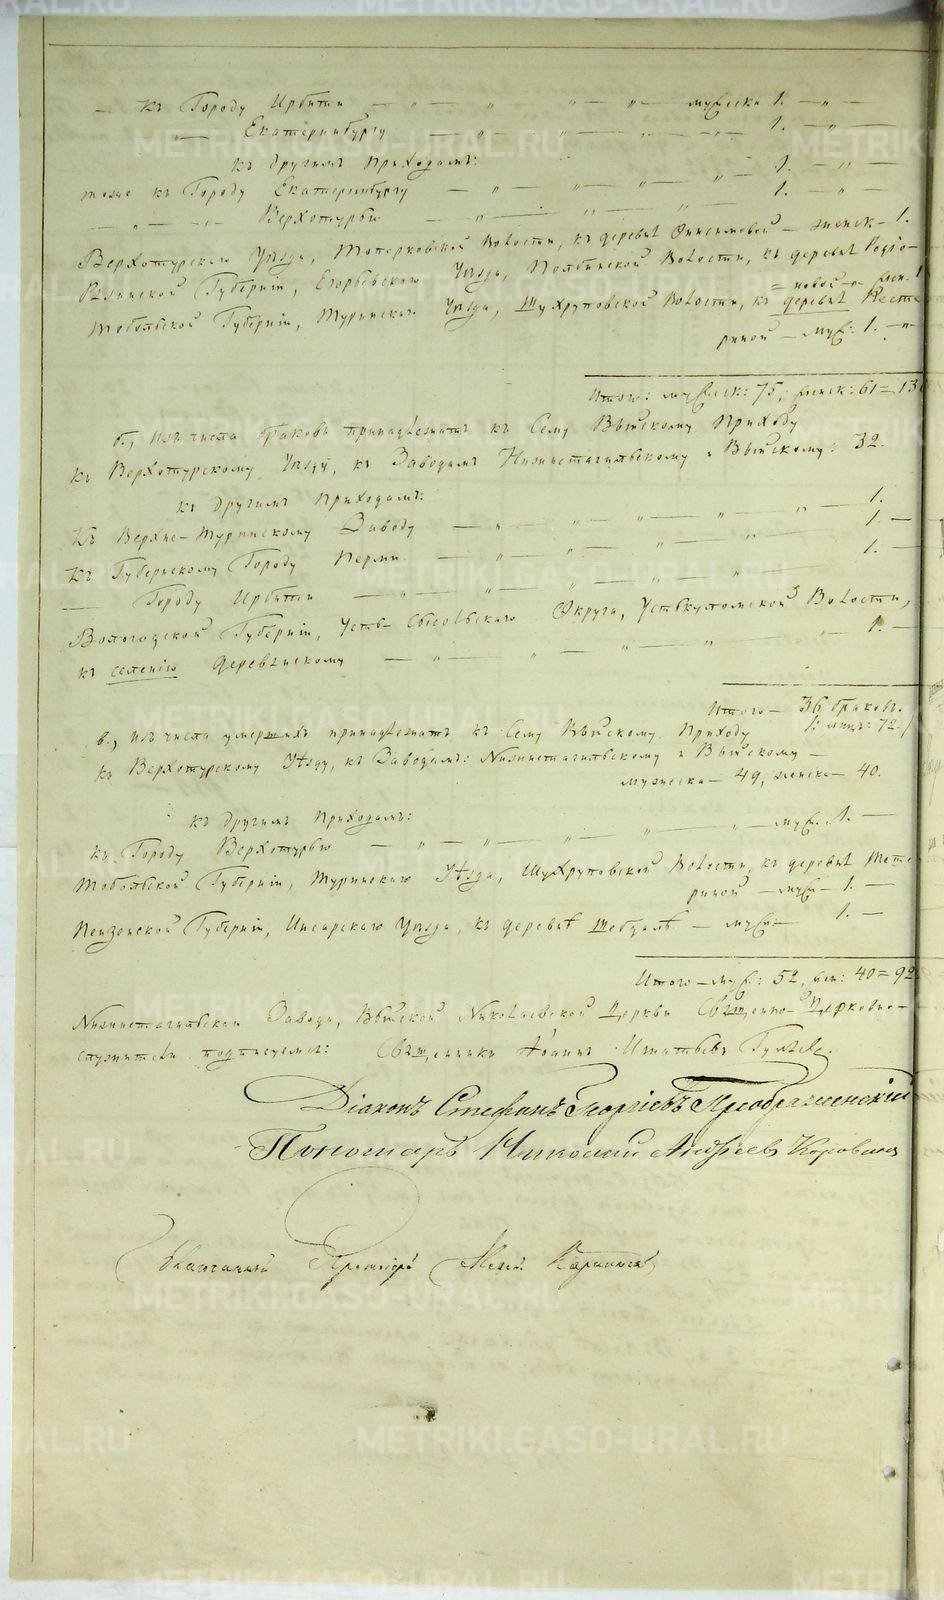 — къ Городу Ирбити — „ — „ „ — „ — мужеска 1. — „ —
„ — Екатеринбургу — „ — „ — „ — „ — 1. — „ —
къ другимъ Приходамъ: 1. — „ —
тоже къ Городу Екатеринбургу — „ — „ — „ — „ — 1. „ —
— „ — „ — Верхотурью — „ — „ — „ —
Верхотурскаго Уѣзда, Топорковской Волости, къ деревнѣ Анисимовой — женск — 1.
Рязанской Губерніи, Егорьевскаго Уѣзда, Волости, къ деревнѣ Родіо-
= новой — „ — жен. 1
Тобольской Губерніи, Туринскаго Уѣзда, Шухруповской Волости, къ деревнѣ
риной — муж: 1. — „ —
Итого: мужеск: 75, женск: 61 = 13
б., изъ числа браковъ принадлежатъ къ Сему Выйскому Приходу
къ Верхотурскому Уѣзду, къ Заводамъ Нижнетагильскому и Выйскому: 32.
къ другимъ Приходамъ:
Къ Верхне-Туринскому Заводу — „ — „ — „ — „ — 1.
къ Губернскому Городу Перми — „ — „ — „ — „ — 1. —
— Городу Ирбити — „ — „ — „ — „ — 1. —
Вологодской Губерніи, Усть-Сысольскаго Округа, Устькуломской Волости,
къ селенію Деревянскому — „ — „ — „ — „ — 1. —
Итого — 36 браковъ.
/: лицъ: 72./
в., изъ числа умершихъ принадлежатъ къ Сему Выйскому Приходу
къ Верхотурскому Уѣзду, къ Заводамъ: Нижнетагильскому и Выйскому —
мужеска — 49, женска — 40.
къ другимъ Приходамъ:
къ Городу Верхотурью — „ — „ — „ — „ — „ — муж. 1. —
Тобольской Губерніи, Туринскаго Уѣзда, Шухруповской Волости, къ деревнѣ
риной — муж — 1. —
Пензенской Губерніи, Инсарскаго Уѣзда, къ деревнѣ — муж — 1. —
Итого — муж: 52, жен: 40 = 92
Нижнетагильскаго Завода, Выйской Николаевской Церкви Священно-Церковно-
служители подписуемся: Священникъ Іоаннъ Игнатьевъ
Діаконъ Стефанъ Георгіевъ Преображенскій
Пономарь Николай Андреевъ
Благочинный
METRIKI.GASO-URAL.RU